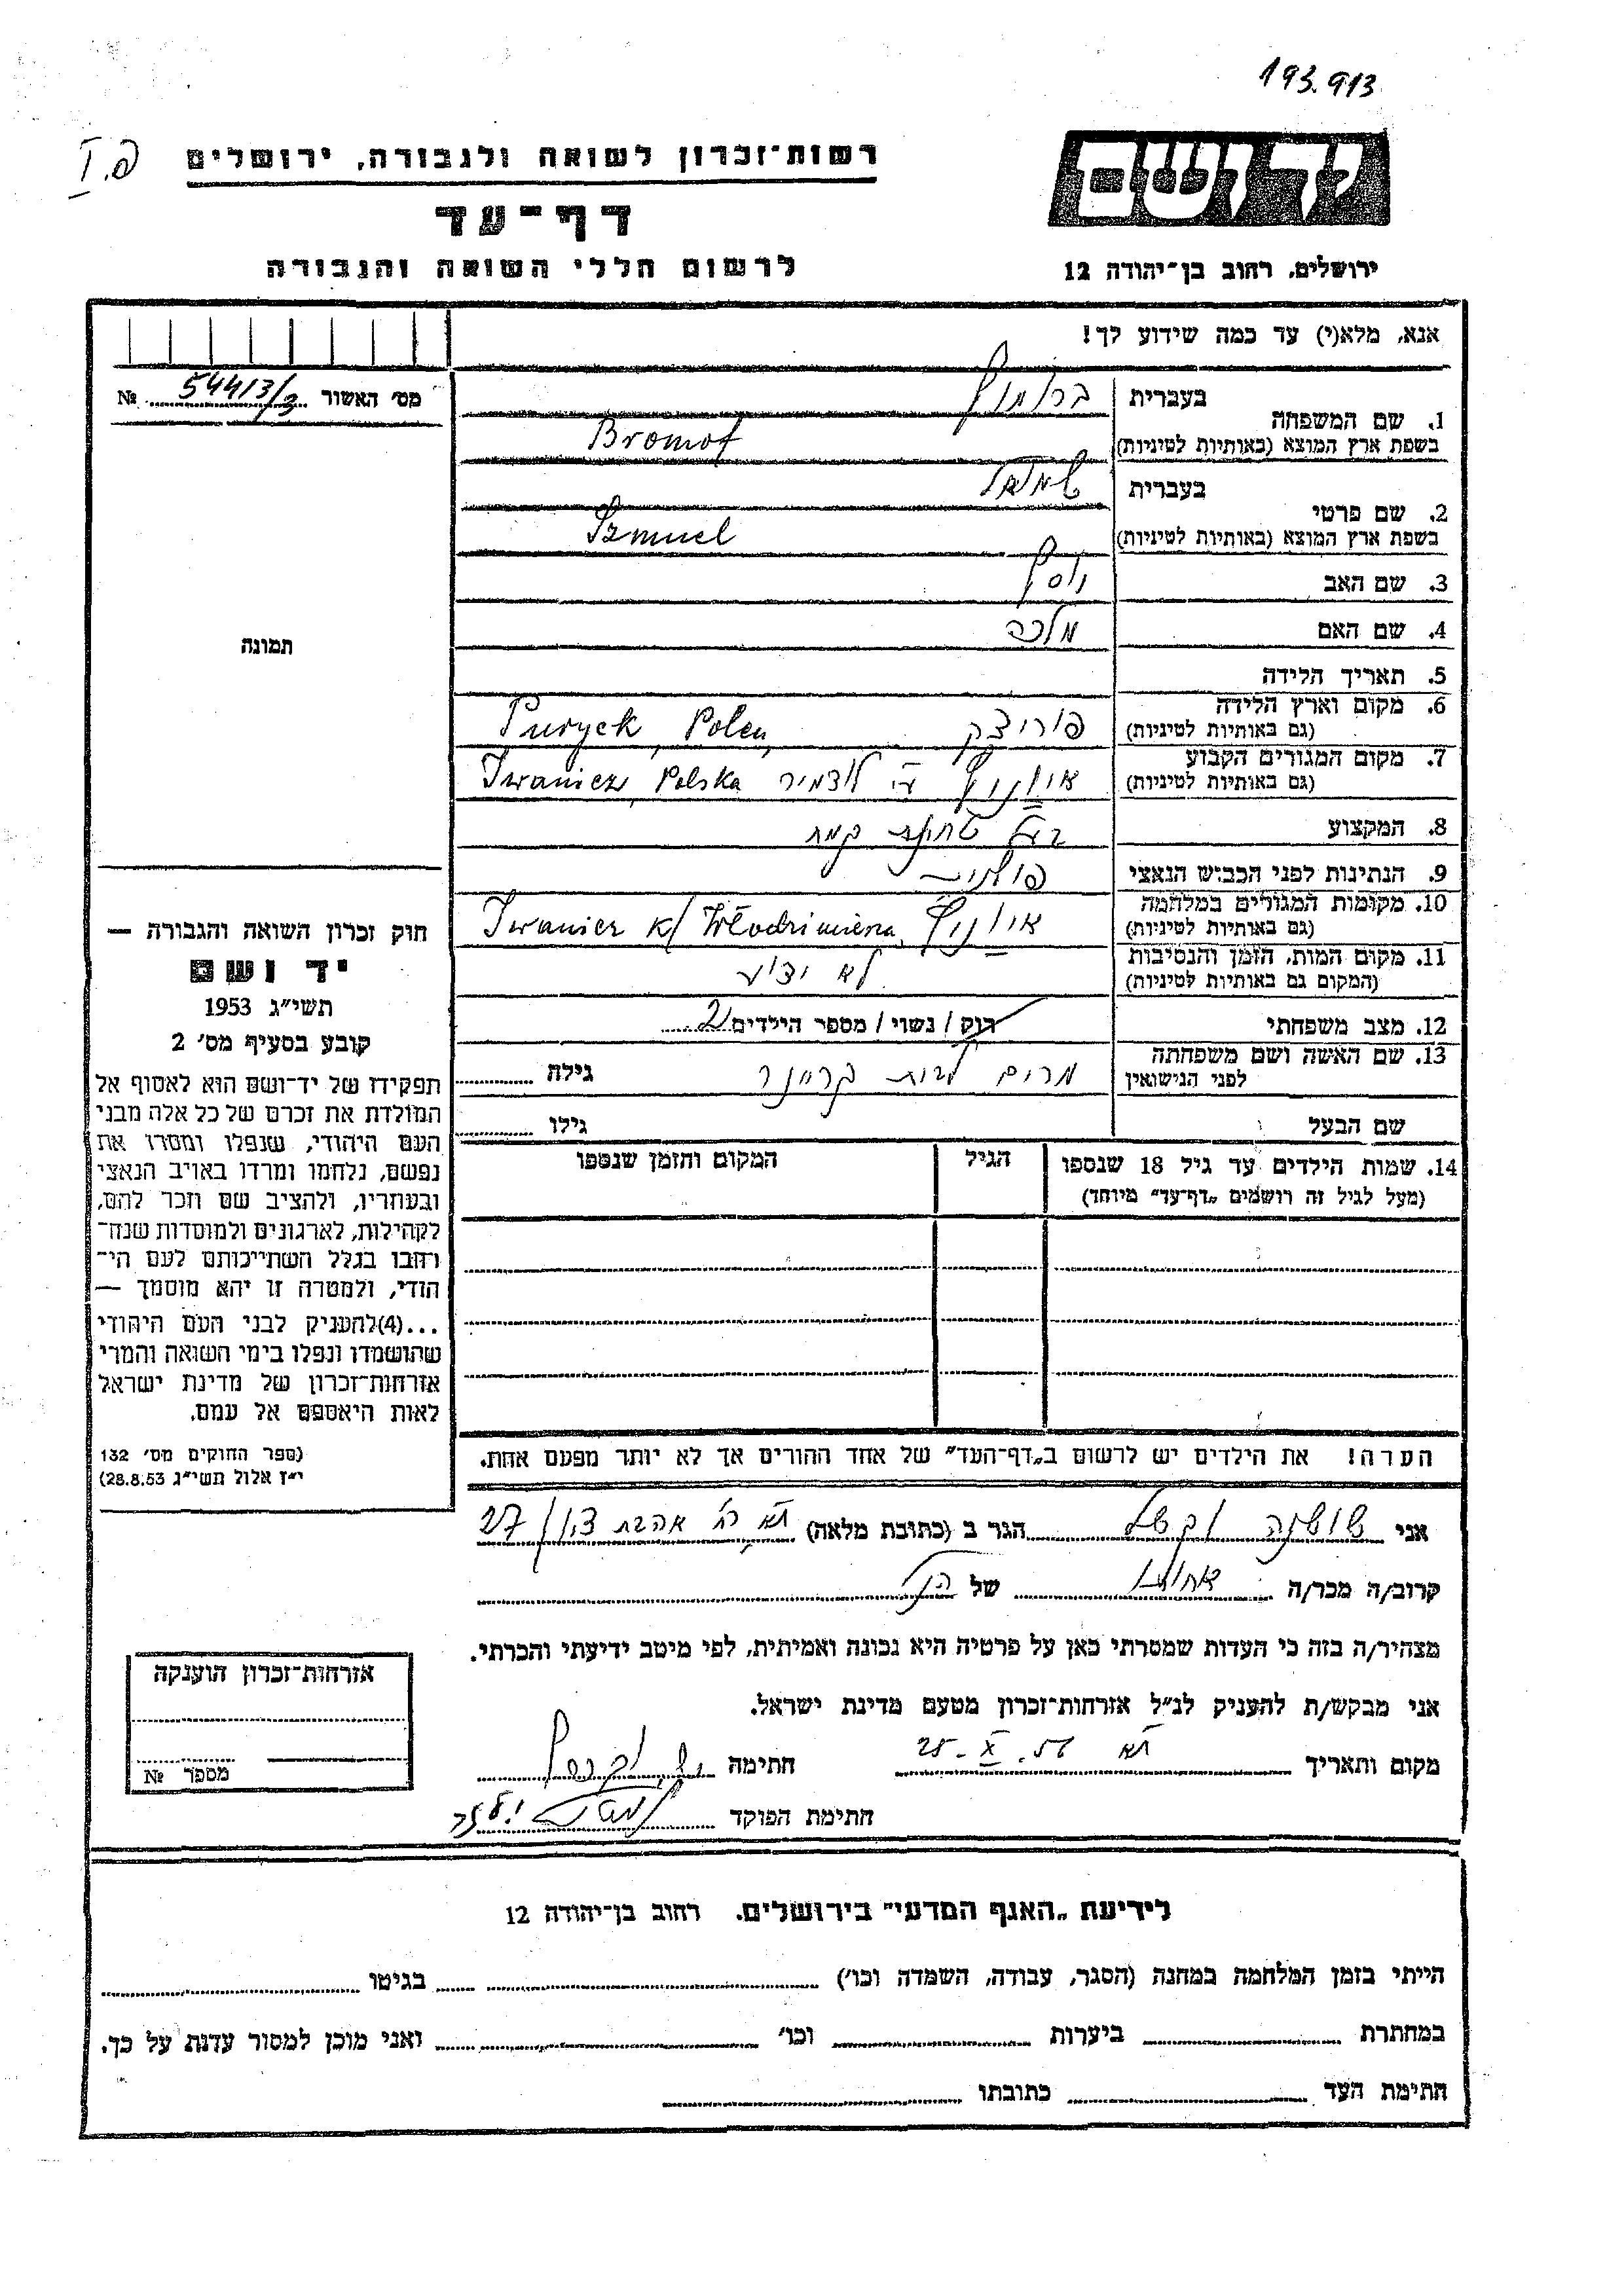 193.913
פ. I
רשות־זכרון לשואה ולגבורה, ירושלים
יד ושם
דף־עד
לרשום חללי השואה והגבורה
ירושלים, רחוב בן־יהודה 12
אנא, מלא(י) עד כמה שידוע לך!
מס׳ האשור 54413/3 №
תמונה
חוק זכרון השואה והגבורה —
יד ושם
תשי״ג 1953
קובע בסעיף מס׳ 2
תפקידו של יד־ושם הוא לאסוף אל
המולדת את זכרם של כל אלה מבני
העם היהודי, שנפלו ומסרו את
נפשם, נלחמו ומרדו באויב הנאצי
ובעוזריו, ולהציב שם וזכר להם,
לקהילות, לארגונים ולמוסדות שנח־
רבו בגלל השתייכותם לעם הי־
הודי, ולמטרה זו יהא מוסמך —
...(4)להעניק לבני העם היהודי
שהושמדו ונפלו בימי השואה והמרי
אזרחות־זכרון של מדינת ישראל
לאות היאספם אל עמם.
(ספר החוקים מס׳ 132
י״ז אלול תשי״ג 28.8.53)
1. שם המשפחה בעברית ברומוף
בשפת ארץ המוצא (באותיות לטיניות) Bromof
2. שם פרטי בעברית שמואל
בשפת ארץ המוצא (באותיות לטיניות) Szmuel
3. שם האב יוסף
4. שם האם מלכה
5. תאריך הלידה
6. מקום וארץ הלידה
(גם באותיות לטיניות) פוריצק Puryck, Polen
7. מקום המגורים הקבוע
(גם באותיות לטיניות) איוניץ ע״י לודמיר Iwanicz, Polska
8. המקצוע בעל טחנת קמח
9. הנתינות לפני הכבוש הנאצי פולנית
10. מקומות המגורים במלחמה
(גם באותיות לטיניות) איוניץ Iwanicz k/ Włodzimierza
11. מקום המות, הזמן והנסיבות
(המקום גם באותיות לטיניות) לא ידוע
12. מצב משפחתי רוק / נשוי / מספר הילדים 2
13. שם האשה ושם משפחתה
לפני הנישואין מרים לבית קרייזר גילה
שם הבעל גילו
14. שמות הילדים עד גיל 18 שנספו הגיל המקום והזמן שנספו
(מעל לגיל זה רושמים „דף־עד״ מיוחד)
הערה! את הילדים יש לרשום ב„דף־העד״ של אחד ההורים אך לא יותר מפעם אחת.
אני שושנה וקסל הגר ב (כתובת מלאה) ת״א רח׳ אהבת ציון 27
קרוב/ה מכר/ה אחותו של הנ״ל
מצהיר/ה בזה כי העדות שמסרתי כאן על פרטיה היא נכונה ואמיתית, לפי מיטב ידיעתי והכרתי.
אני מבקש/ת להעניק לנ״ל אזרחות־זכרון מטעם מדינת ישראל.
מקום ותאריך ת״א 25.X.56 חתימה
חתימת הפוקד
אזרחות־זכרון הוענקה
מספר №
לידיעת „האגף המדעי״ בירושלים. רחוב בן־יהודה 12
הייתי בזמן המלחמה במחנה (הסגר, עבודה, השמדה וכו׳) בגיטו
במחתרת ביערות וכו׳ ואני מוכן למסור עדות על כך.
חתימת העד כתובתו